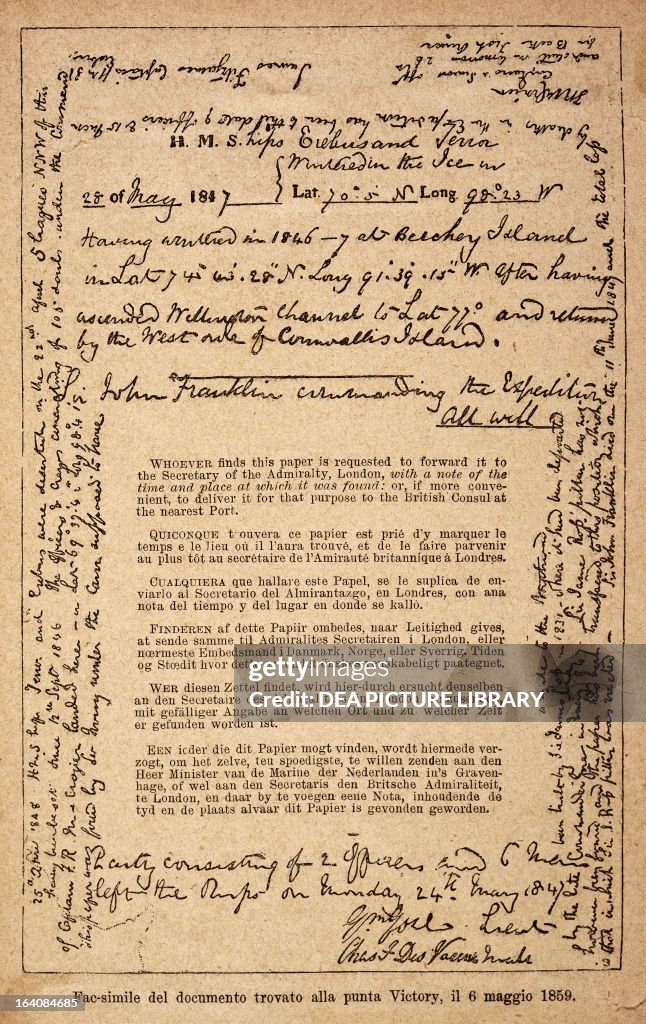 H. M. Ships Erebus and Terror
Wintered in the Ice in
28 of May 1847 Lat. 70° 5 N Long. 98° 23 W
Having wintered in 1846–7 at Beechey Island
in Lat 74° 43' 28" N. Long 91° 39' 15" W After having
ascended Wellington Channel to Lat 77° and returned
by the West side of Cornwallis Island.
John Franklin commanding the Expedition
All well
WHOEVER finds this paper is requested to forward it to
the Secretary of the Admiralty, London, with a note of the
time and place at which it was found: or, if more conve-
nient, to deliver it for that purpose to the British Consul at
the nearest Port.
QUICONQUE trouvera ce papier est prié d'y marquer le
temps e le lieu où il l'aura trouvé, et de le faire parvenir
au plus tôt au secrétaire de l'Amirauté britannique à Londres.
CUALQUIERA que hallare este Papel, se le suplica de en-
viarlo al Socretario del Almirantazgo, en Londres, con una
nota del tiempo y del lugar en donde se kallò.
FINDEREN af dette Papiir ombedes, naar Leitighed gives,
at sende samme til Admiralites Secretairen i London, eller
nœrmeste Embedsmand i Danmark, Norge, eller Sverrig. Tiden
og Stœdit hvor det skabeligt paategnet.
WER diesen Zettel findet, wird hier-durch ersucht denselben
an den Secretaire
mit gefälliger Angabe an welchen Ort und zu welcher Zeit
er gefunden worden ist.
EEN icder die dit Papier mogt vinden, wordt hiermede ver-
zogt, om het zelve, teu spoedigste, te willen zenden aan den
Heer Minister van de Marine der Nederlanden in's Graven-
hage, of wel aan den Secretaris den Britsche Admiraliteit,
te London, en daar by te voegen eene Nota, inhoudende de
tyd en de plaats alvaar dit Papier is gevonden geworden.
Party consisting of 2 Officers and 6 Men
left the Ships on Monday 24th May 1847
Gm Gore Lieut
Chas F Des Voeux Mate
25th April 1848 H M Ships Terror and Erebus were deserted on the 22nd April 5 leagues NNW of this
having been beset since 12th Sept 1846 The Officers & Crews consisting of 105 souls under the Command
of Captain F. R. M. Crozier landed here in Lat 69° 37' 42" Long 98° 41'
This paper was found by Lt Irving under the Cairn supposed to have
been built by Sir James Ross in 1831 where it had been deposited
by the late Commander Gore in June 1847 Sir James Ross' pillar has not
however been found and the paper has been transferred to this position which
is that in which Sir J. R's pillar was erected Sir John Franklin died on the 11th June 1847 and the total loss
by deaths in the Expedition has been to this date 9 officers & 15 Men
James Fitzjames Captain HMS Erebus
F R M Crozier
Captain & Senior Offr
and start on tomorrow 26
for Backs Fish River
gettyimages
Credit: DEA PICTURE LIBRARY
164084685
Fac-simile del documento trovato alla punta Victory, il 6 maggio 1859.